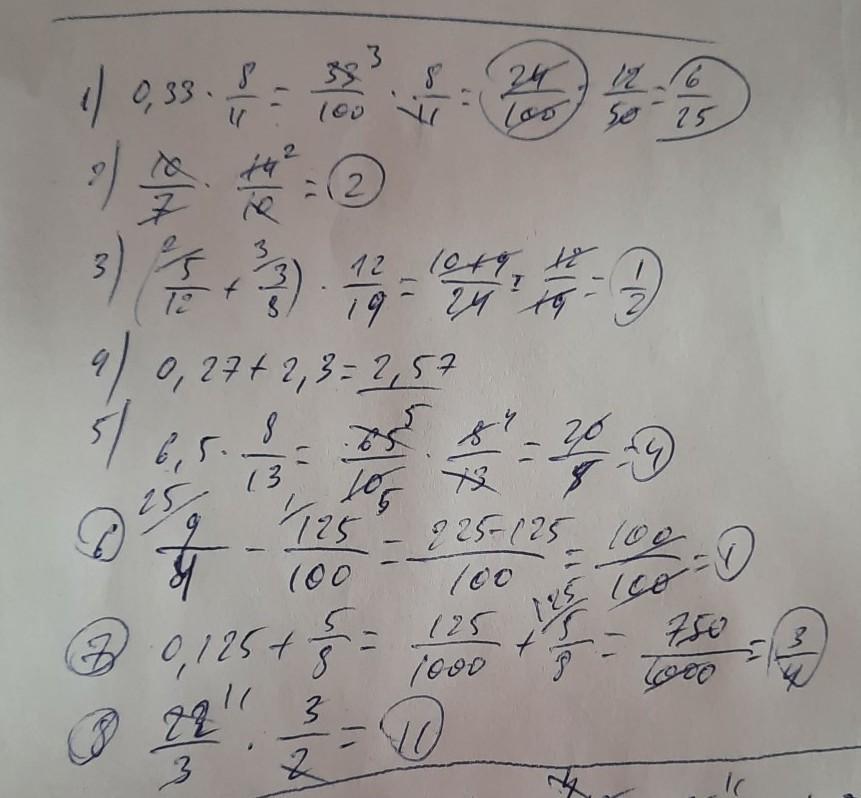 1) 0,33 · 8/11 = 33/100 3 · 8/11 = 24/100 · 12/50 = 6/25
2) 10/7 · 14/10 2 = 2
3) (2/ 5/12 + 3/ 3/8) · 12/19 = 10+9/24 · 12/19 = 1/2
4) 0,27 + 2,3 = 2,57
5) 6,5 · 8/13 = 65/10 5 5 · 8/13 4 = 20/5 = 4
6 25/ 9/4 - 1/ 125/100 = 225-125/100 = 100/100 = 1
7 0,125 + 5/8 = 125/1000 + 125/ 5/8 = 750/1000 = 3/4
8 22/3 11 · 3/2 = 11